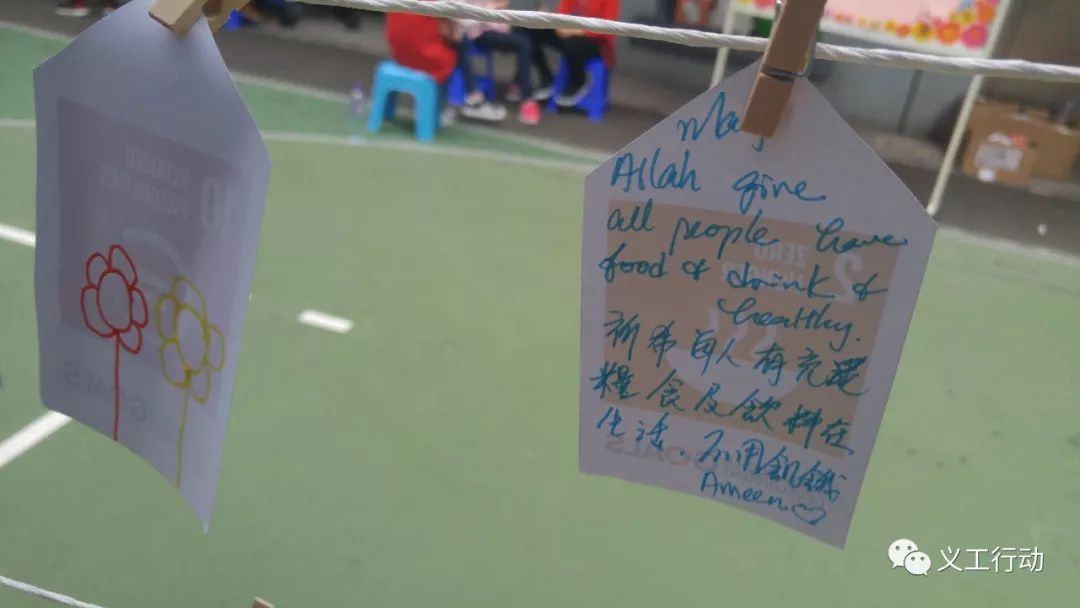 10 REDUCED
INEQUALITIES
GOALS
May
Allah give
all people have
food & drink &
healthy.
祈希每人有充
糧食及飲料在
生活.不用飢餓
Ameen♡
2 ZERO
HUNGER
GOALS
义工行动